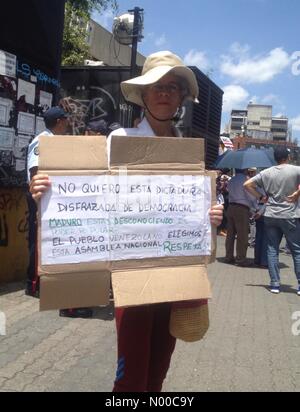 NO QUIERO ESTA DICTADURA
DISFRAZADA DE DEMOCRACIA
MADURO ESTÁS DESCONOCIENDO EL
EL PUEBLO VENEZOLANO ELEGIMOS
ESTA ASAMBLEA NACIONAL RESPETA